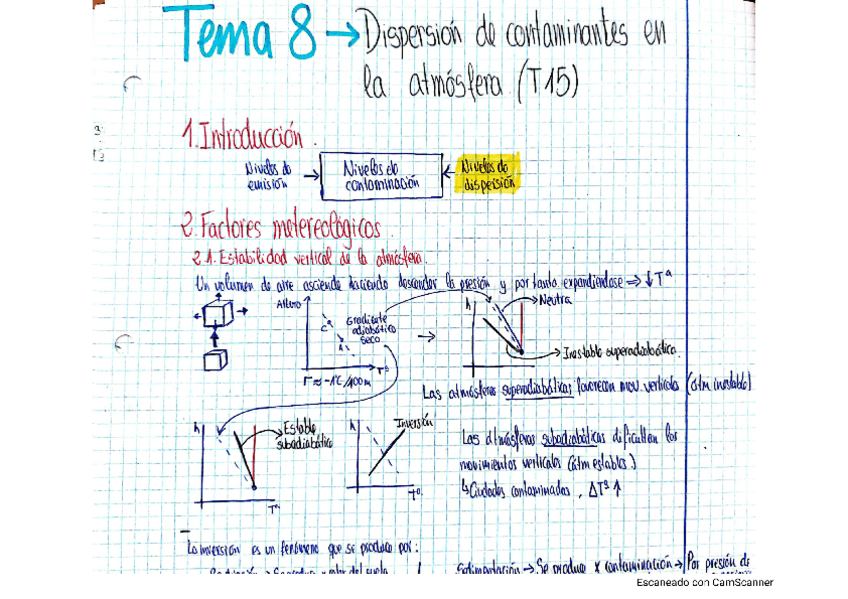 Tema 8 → Dispersión de contaminantes en
la atmósfera (T15)
1. Introducción.
Niveles de emisión → Niveles de contaminación ← Niveles de dispersión
2. Factores metereológicos.
2.1. Estabilidad vertical de la atmósfera.
Un volumen de aire asciende haciendo descender la presión y por tanto expandiendose ⇒ ↓Tª
Altura
Gradiente
adiabático
seco
Tª
Γ ≈ -1ºC/100m
→
h
Neutra
Inestable superadiabática.
Las atmósferas superadiabáticas favorecen mov. verticales (atm inestable)
h
Estable
subadiabático
Tª
h
Inversión
Tª
Las atmósferas subadiabáticas dificultan los
movimientos verticales (atm estables)
↳ Ciudades contaminadas, ΔTª ↑
La inversión es un fenómeno que se produce por:
Sedimentación → Se produce x contaminación → Por presión de
Escaneado con CamScanner